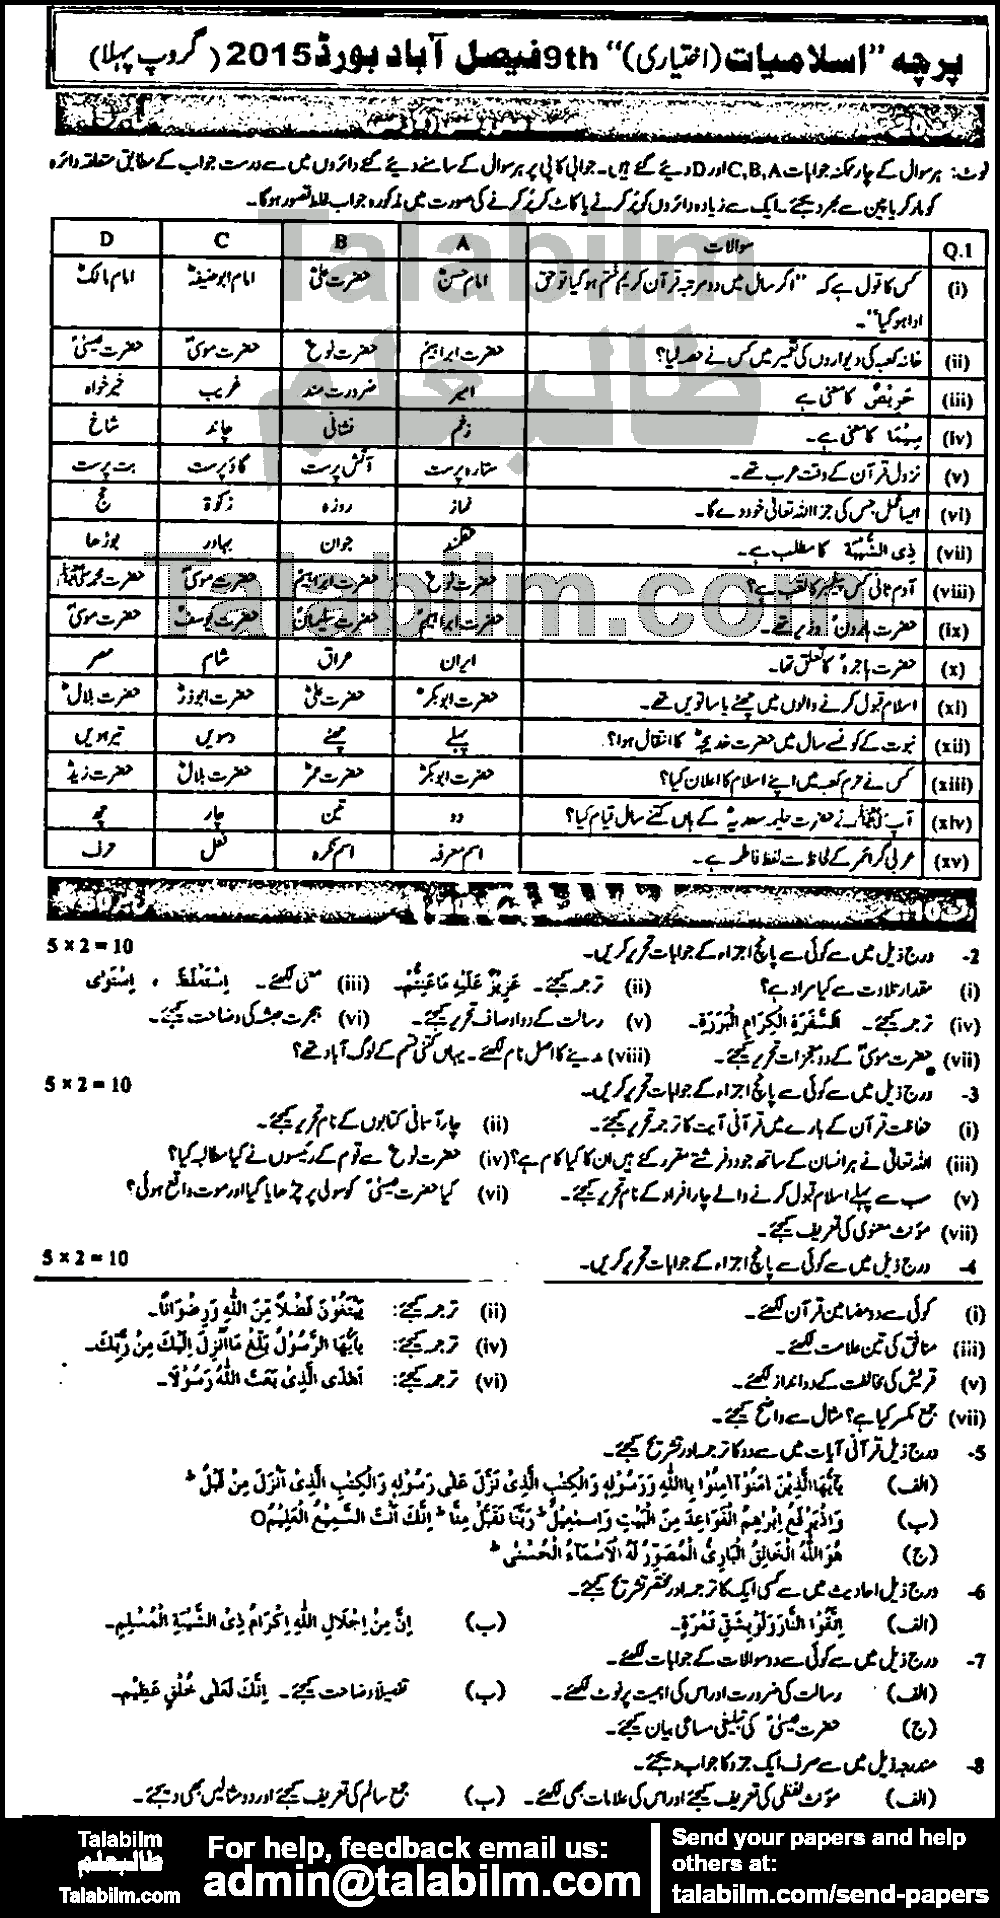 پرچہ "اسلامیات (اختیاری)" 9th فیصل آباد بورڈ 2015 (گروپ پہلا)
نوٹ: ہر سوال کے چار ممکنہ جوابات C,B,A اور D دیئے گئے ہیں۔ جوابی کاپی پر ہر سوال کے سامنے دیئے گئے دائروں میں سے درست جواب کے مطابق متعلقہ دائرہ
کو مارکر یا پین سے بھر دیجئے۔ ایک سے زیادہ دائروں کو پُر کرنے یا کاٹ کر پُر کرنے کی صورت میں مذکورہ جواب غلط تصور ہوگا۔
Talabilm
طالبعلم
Talabilm.com
Q.1 سوالات A B C D
(i) کس کا قول ہے کہ "اگر سال میں دو مرتبہ قرآن کریم ختم ہو گیا تو حق امام حسنؓ حضرت علیؓ امام ابو حنیفہؒ امام مالکؒ
ادا ہو گیا"۔
(ii) خانہ کعبہ کی دیواروں کی تعمیر میں کس نے حصہ لیا؟ حضرت ابراہیمؑ حضرت نوحؑ حضرت موسیٰؑ حضرت عیسیٰؑ
(iii) حَرِیْصٌ کا معنی ہے امیر ضرورت مند غریب خیر خواہ
(iv) سِیْمَا کا معنی ہے۔ زخم نشانی چاند شاخ
(v) نزول قرآن کے وقت عرب تھے۔ ستارہ پرست آتش پرست گاؤ پرست بت پرست
(vi) ایسا عمل جس کی جزا اللہ تعالیٰ خود دے گا۔ نماز روزہ زکوٰۃ حج
(vii) ذِی الشَّیْبَۃِ کا مطلب ہے۔ عقلمند جوان بہادر بوڑھا
(viii) آدم ثانی کس پیغمبر کا لقب ہے؟ حضرت نوحؑ حضرت ابراہیمؑ حضرت موسیٰؑ حضرت محمدﷺ
(ix) حضرت ہارونؑ وزیر تھے۔ حضرت ابراہیمؑ حضرت سلیمانؑ حضرت یوسفؑ حضرت موسیٰؑ
(x) حضرت ہاجرہؑ کا تعلق تھا۔ ایران عراق شام مصر
(xi) اسلام قبول کرنے والوں میں چھٹے یا ساتویں تھے۔ حضرت ابوبکرؓ حضرت علیؓ حضرت ابوذرؓ حضرت بلالؓ
(xii) نبوت کے کونسے سال میں حضرت خدیجہؓ کا انتقال ہوا؟ پہلے چھٹے دسویں تیرہویں
(xiii) کس نے حرم کعبہ میں اپنے اسلام کا اعلان کیا؟ حضرت ابوبکرؓ حضرت عمرؓ حضرت بلالؓ حضرت زیدؓ
(xiv) آپ ﷺ نے حضرت حلیمہ سعدیہؓ کے ہاں کتنے سال قیام کیا؟ دو تین چار چھ
(xv) عربی گرائمر کے لحاظ سے لفظ فاطمہ ہے۔ اسم معرفہ اسم نکرہ فعل حرف
2- درج ذیل میں سے کوئی سے پانچ اجزاء کے جوابات تحریر کریں۔ 5 × 2 = 10
(i) مقدار تلاوت سے کیا مراد ہے؟ (ii) ترجمہ کیجئے۔ عَزِیْزٌ عَلَیْہِ مَا عَنِتُّمْ۔ (iii) معنی لکھئے۔ اِسْتَغْلَظَ ، اِسْتَوٰی
(iv) ترجمہ کیجئے۔ اَلسَّفَرَۃِ الْکِرَامِ الْبَرَرَۃِ۔ (v) رسالت کے دو اوصاف تحریر کیجئے۔ (vi) ہجرت حبشہ کی وضاحت کیجئے۔
(vii) حضرت موسیٰؑ کے دو معجزات تحریر کیجئے۔ (viii) مدینے کا اصل نام لکھئے۔ یہاں کتنی قسم کے لوگ آباد تھے؟
3- درج ذیل میں سے کوئی سے پانچ اجزاء کے جوابات تحریر کریں۔ 5 × 2 = 10
(i) حفاظت قرآن کے بارے میں قرآنی آیت کا ترجمہ تحریر کیجئے۔ (ii) چار آسمانی کتابوں کے نام تحریر کیجئے۔
(iii) اللہ تعالیٰ نے ہر انسان کے ساتھ جو دو فرشتے مقرر کئے ہیں ان کا کیا کام ہے؟ (iv) حضرت نوحؑ سے قوم کے رئیسوں نے کیا مطالبہ کیا؟
(v) سب سے پہلے اسلام قبول کرنے والے چار افراد کے نام تحریر کیجئے۔ (vi) کیا حضرت عیسیٰؑ کو سولی پر چڑھایا گیا اور موت واقع ہوئی؟
(vii) مؤنث معنوی کی تعریف کیجئے۔
4- درج ذیل میں سے کوئی سے پانچ اجزاء کے جوابات تحریر کریں۔ 5 × 2 = 10
(i) کوئی سے دو مضامین قرآن لکھئے۔ (ii) ترجمہ کیجئے: یَبْتَغُوْنَ فَضْلاً مِّنَ اللّٰہِ وَرِضْوَانًا۔
(iii) منافق کی تین علامت لکھئے۔ (iv) ترجمہ کیجئے: یٰٓاَیُّھَا الرَّسُوْلُ بَلِّغْ مَا اُنْزِلَ اِلَیْکَ مِنْ رَّبِّکَ۔
(v) قریش کی مخالفت کے دو انداز لکھئے۔ (vi) ترجمہ کیجئے: اَھٰذَا الَّذِیْ بَعَثَ اللّٰہُ رَسُوْلًا۔
(vii) جمع مکسر کیا ہے؟ مثال سے واضح کیجئے۔
5- درج ذیل قرآنی آیات میں سے دو کا ترجمہ اور تشریح کیجئے۔
(الف) یٰٓاَیُّھَا الَّذِیْنَ اٰمَنُوْا اٰمِنُوْا بِاللّٰہِ وَرَسُوْلِہٖ وَالْکِتٰبِ الَّذِیْ نَزَّلَ عَلٰی رَسُوْلِہٖ وَالْکِتٰبِ الَّذِیْ اَنْزَلَ مِنْ قَبْلُ ط
(ب) وَاِذْ یَرْفَعُ اِبْرٰھٖمُ الْقَوَاعِدَ مِنَ الْبَیْتِ وَاِسْمٰعِیْلُ ط رَبَّنَا تَقَبَّلْ مِنَّا ط اِنَّکَ اَنْتَ السَّمِیْعُ الْعَلِیْمُ O
(ج) ھُوَ اللّٰہُ الْخَالِقُ الْبَارِئُ الْمُصَوِّرُ لَہُ الْاَسْمَآءُ الْحُسْنٰی ط
6- درج ذیل احادیث میں سے کسی ایک کا ترجمہ اور مختصر تشریح کیجئے۔
(الف) اِتَّقُوا النَّارَ وَلَوْ بِشِقِّ تَمْرَۃٍ۔ (ب) اِنَّ مِنْ اِجْلَالِ اللّٰہِ اِکْرَامُ ذِی الشَّیْبَۃِ الْمُسْلِمِ۔
7- درج ذیل میں سے کوئی سے دو سوالات کے جوابات لکھئے۔
(الف) رسالت کی ضرورت اور اس کی اہمیت پر نوٹ لکھئے۔ (ب) تفصیلاً وضاحت کیجئے۔ اِنَّکَ لَعَلٰی خُلُقٍ عَظِیْمٍ۔
(ج) حضرت عیسیٰؑ کی تبلیغی مساعی بیان کیجئے۔
8- مندرجہ ذیل میں سے صرف ایک جزو کا جواب دیجئے۔
(الف) مؤنث لفظی کی تعریف کیجئے اور اس کی علامات بھی لکھئے۔ (ب) جمع سالم کی تعریف کیجئے اور دو مثالیں بھی دیجئے۔
Talabilm
طالبعلم
Talabilm.com
For help, feedback email us:
admin@talabilm.com
Send your papers and help
others at:
talabilm.com/send-papers